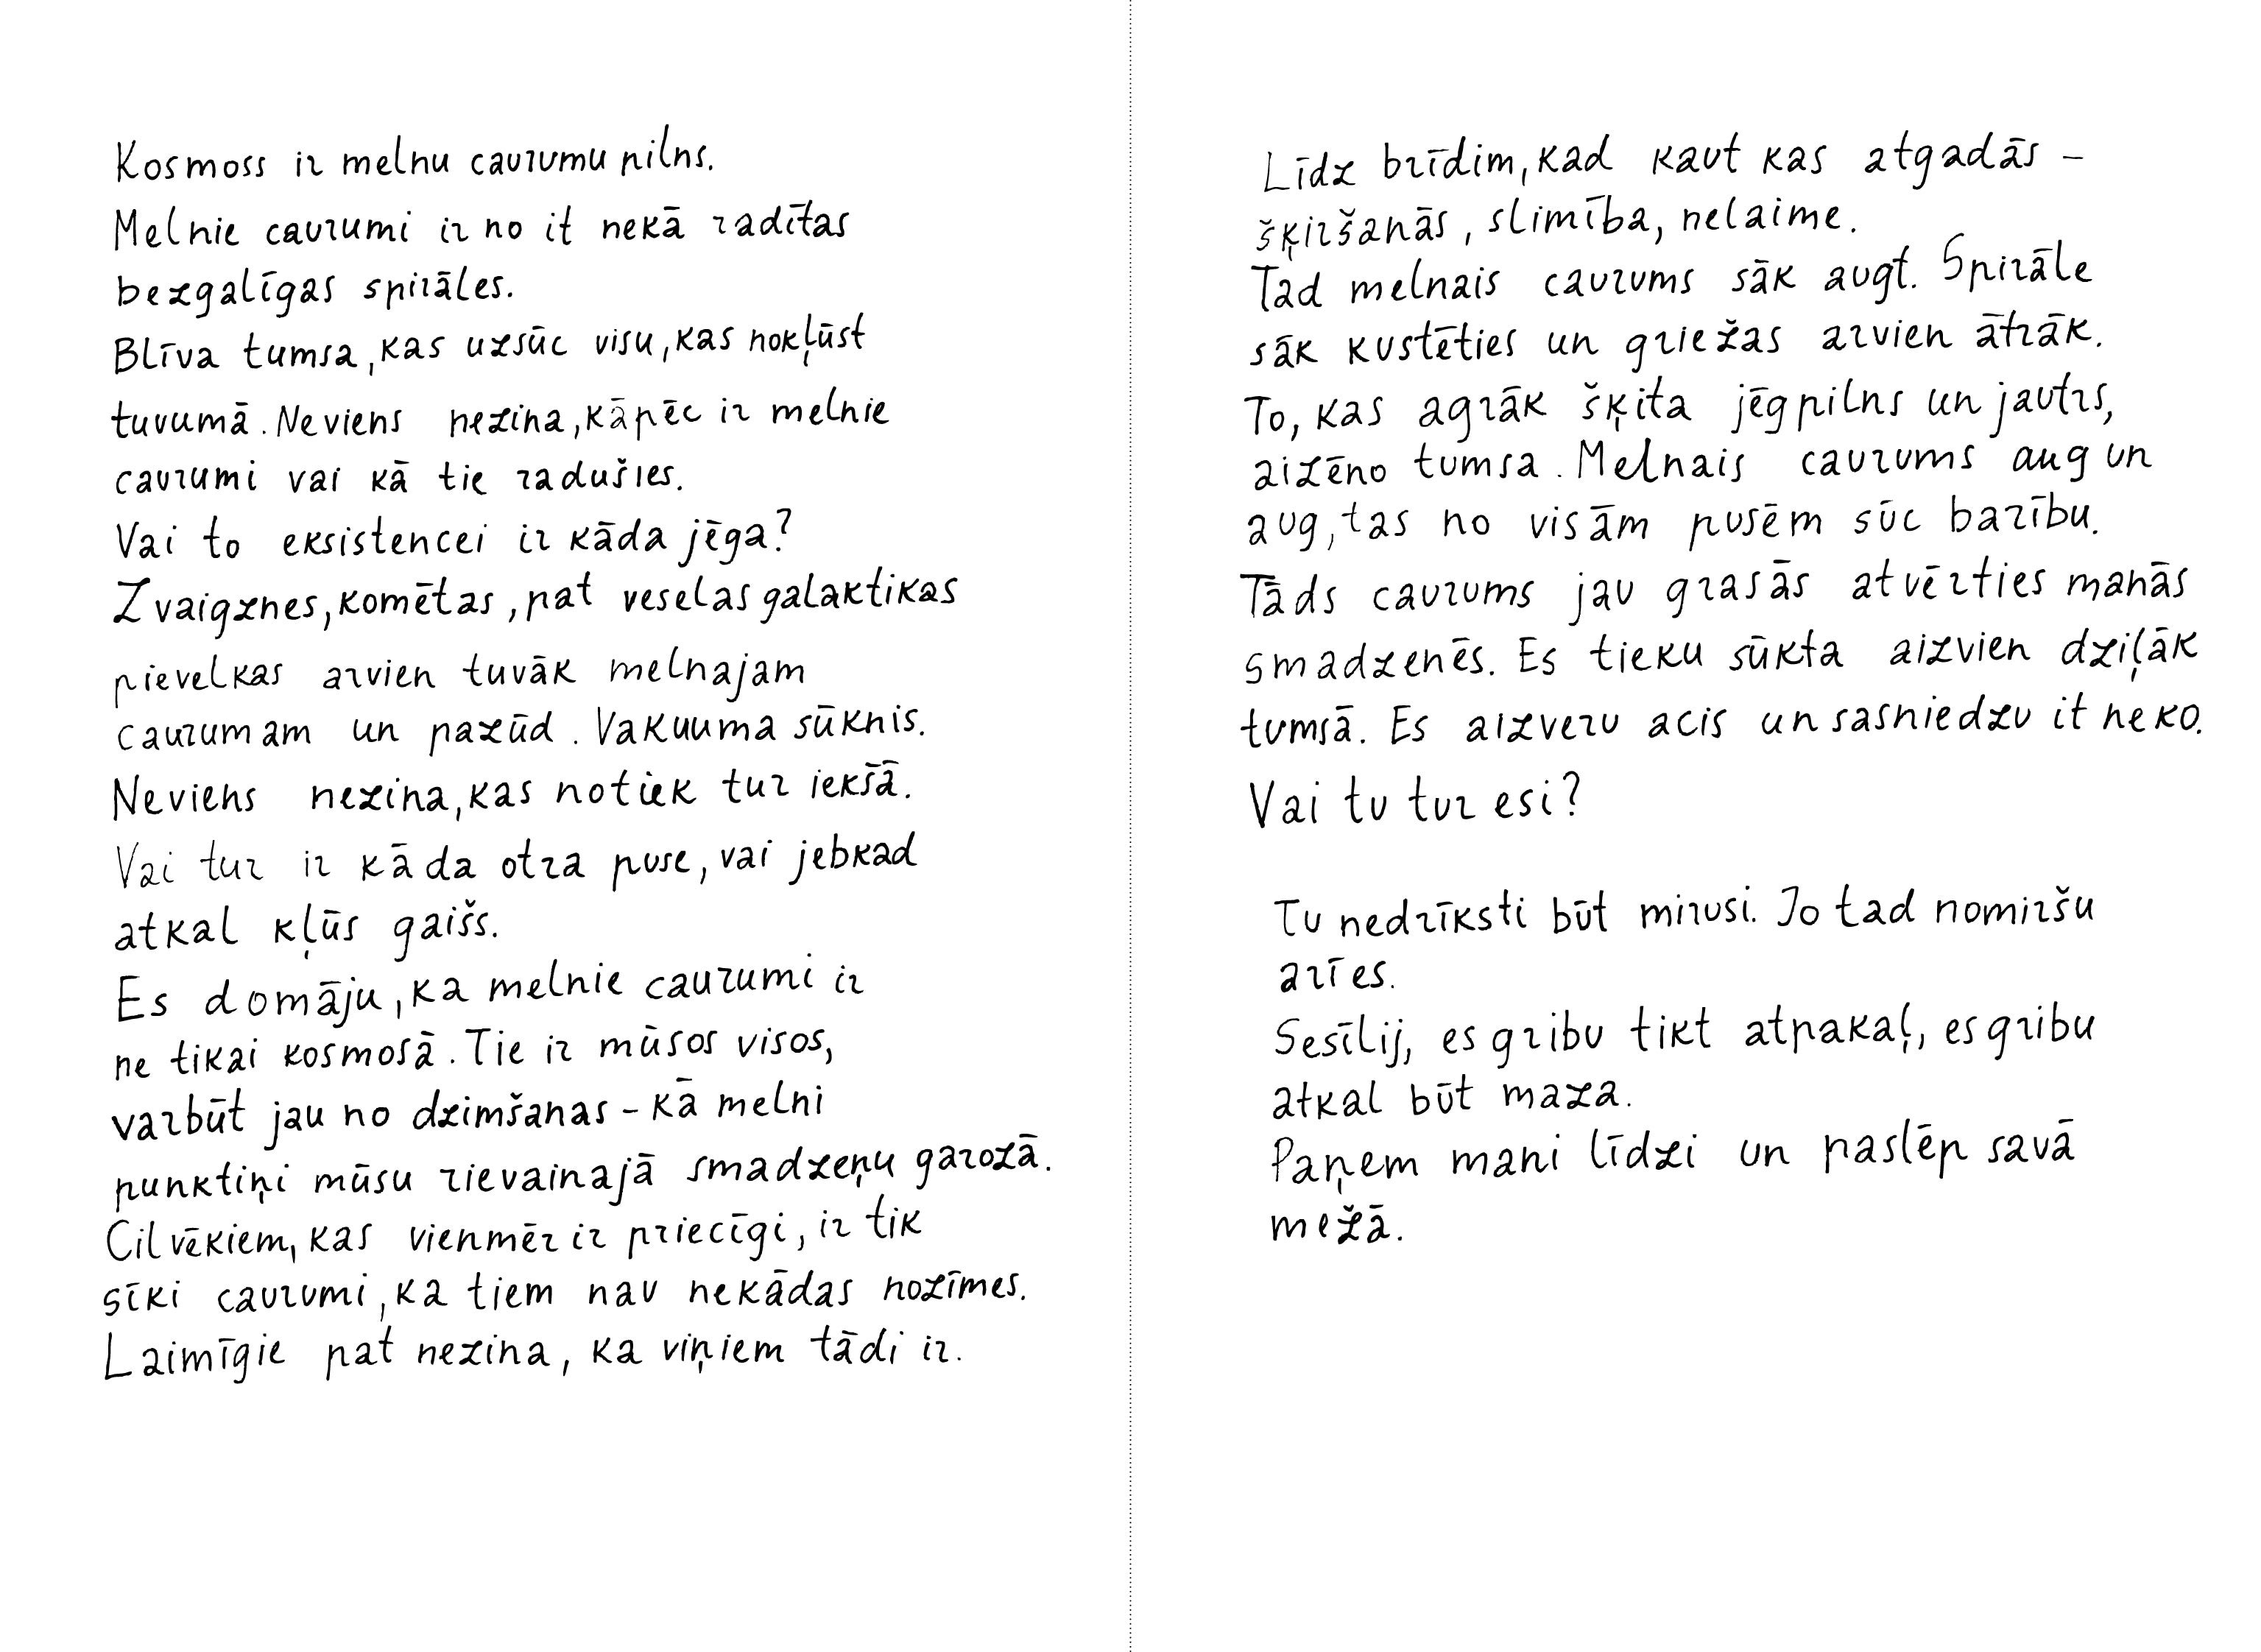 Kosmoss ir melnu caurumu pilns.
Melnie caurumi ir no it nekā radītas
bezgalīgas spirāles.
Blīva tumsa, kas uzsūc visu, kas nokļūst
tuvumā. Neviens nezina, kāpēc ir melnie
caurumi vai kā tie radušies.
Vai to eksistencei ir kāda jēga?
Zvaigznes, komētas, pat veselas galaktikas
pievelkas arvien tuvāk melnajam
caurumam un pazūd. Vakuuma sūknis.
Neviens nezina, kas notiek tur iekšā.
Vai tur ir kāda otra puse, vai jebkad
atkal kļūs gaišs.
Es domāju, ka melnie caurumi ir
ne tikai kosmosā. Tie ir mūsos visos,
varbūt jau no dzimšanas – kā melni
punktiņi mūsu rievainajā smadzeņu garozā.
Cilvēkiem, kas vienmēr ir priecīgi, ir tik
sīki caurumi, ka tiem nav nekādas nozīmes.
Laimīgie pat nezina, ka viņiem tādi ir.
Līdz brīdim, kad kaut kas atgadās –
šķiršanās, slimība, nelaime.
Tad melnais caurums sāk augt. Spirāle
sāk kustēties un griežas arvien ātrāk.
To, kas agrāk šķita jēgpilns un jautrs,
aizēno tumsa. Melnais caurums aug un
aug, tas no visām pusēm sūc barību.
Tāds caurums jau grasās atvērties manās
smadzenēs. Es tieku sūkta aizvien dziļāk
tumsā. Es aizveru acis un sasniedzu it neko.
Vai tu tur esi?
Tu nedrīksti būt mirusi. Jo tad nomiršu
arī es.
Sesīlij, es gribu tikt atpakaļ, es gribu
atkal būt maza.
Paņem mani līdzi un paslēp savā
mežā.